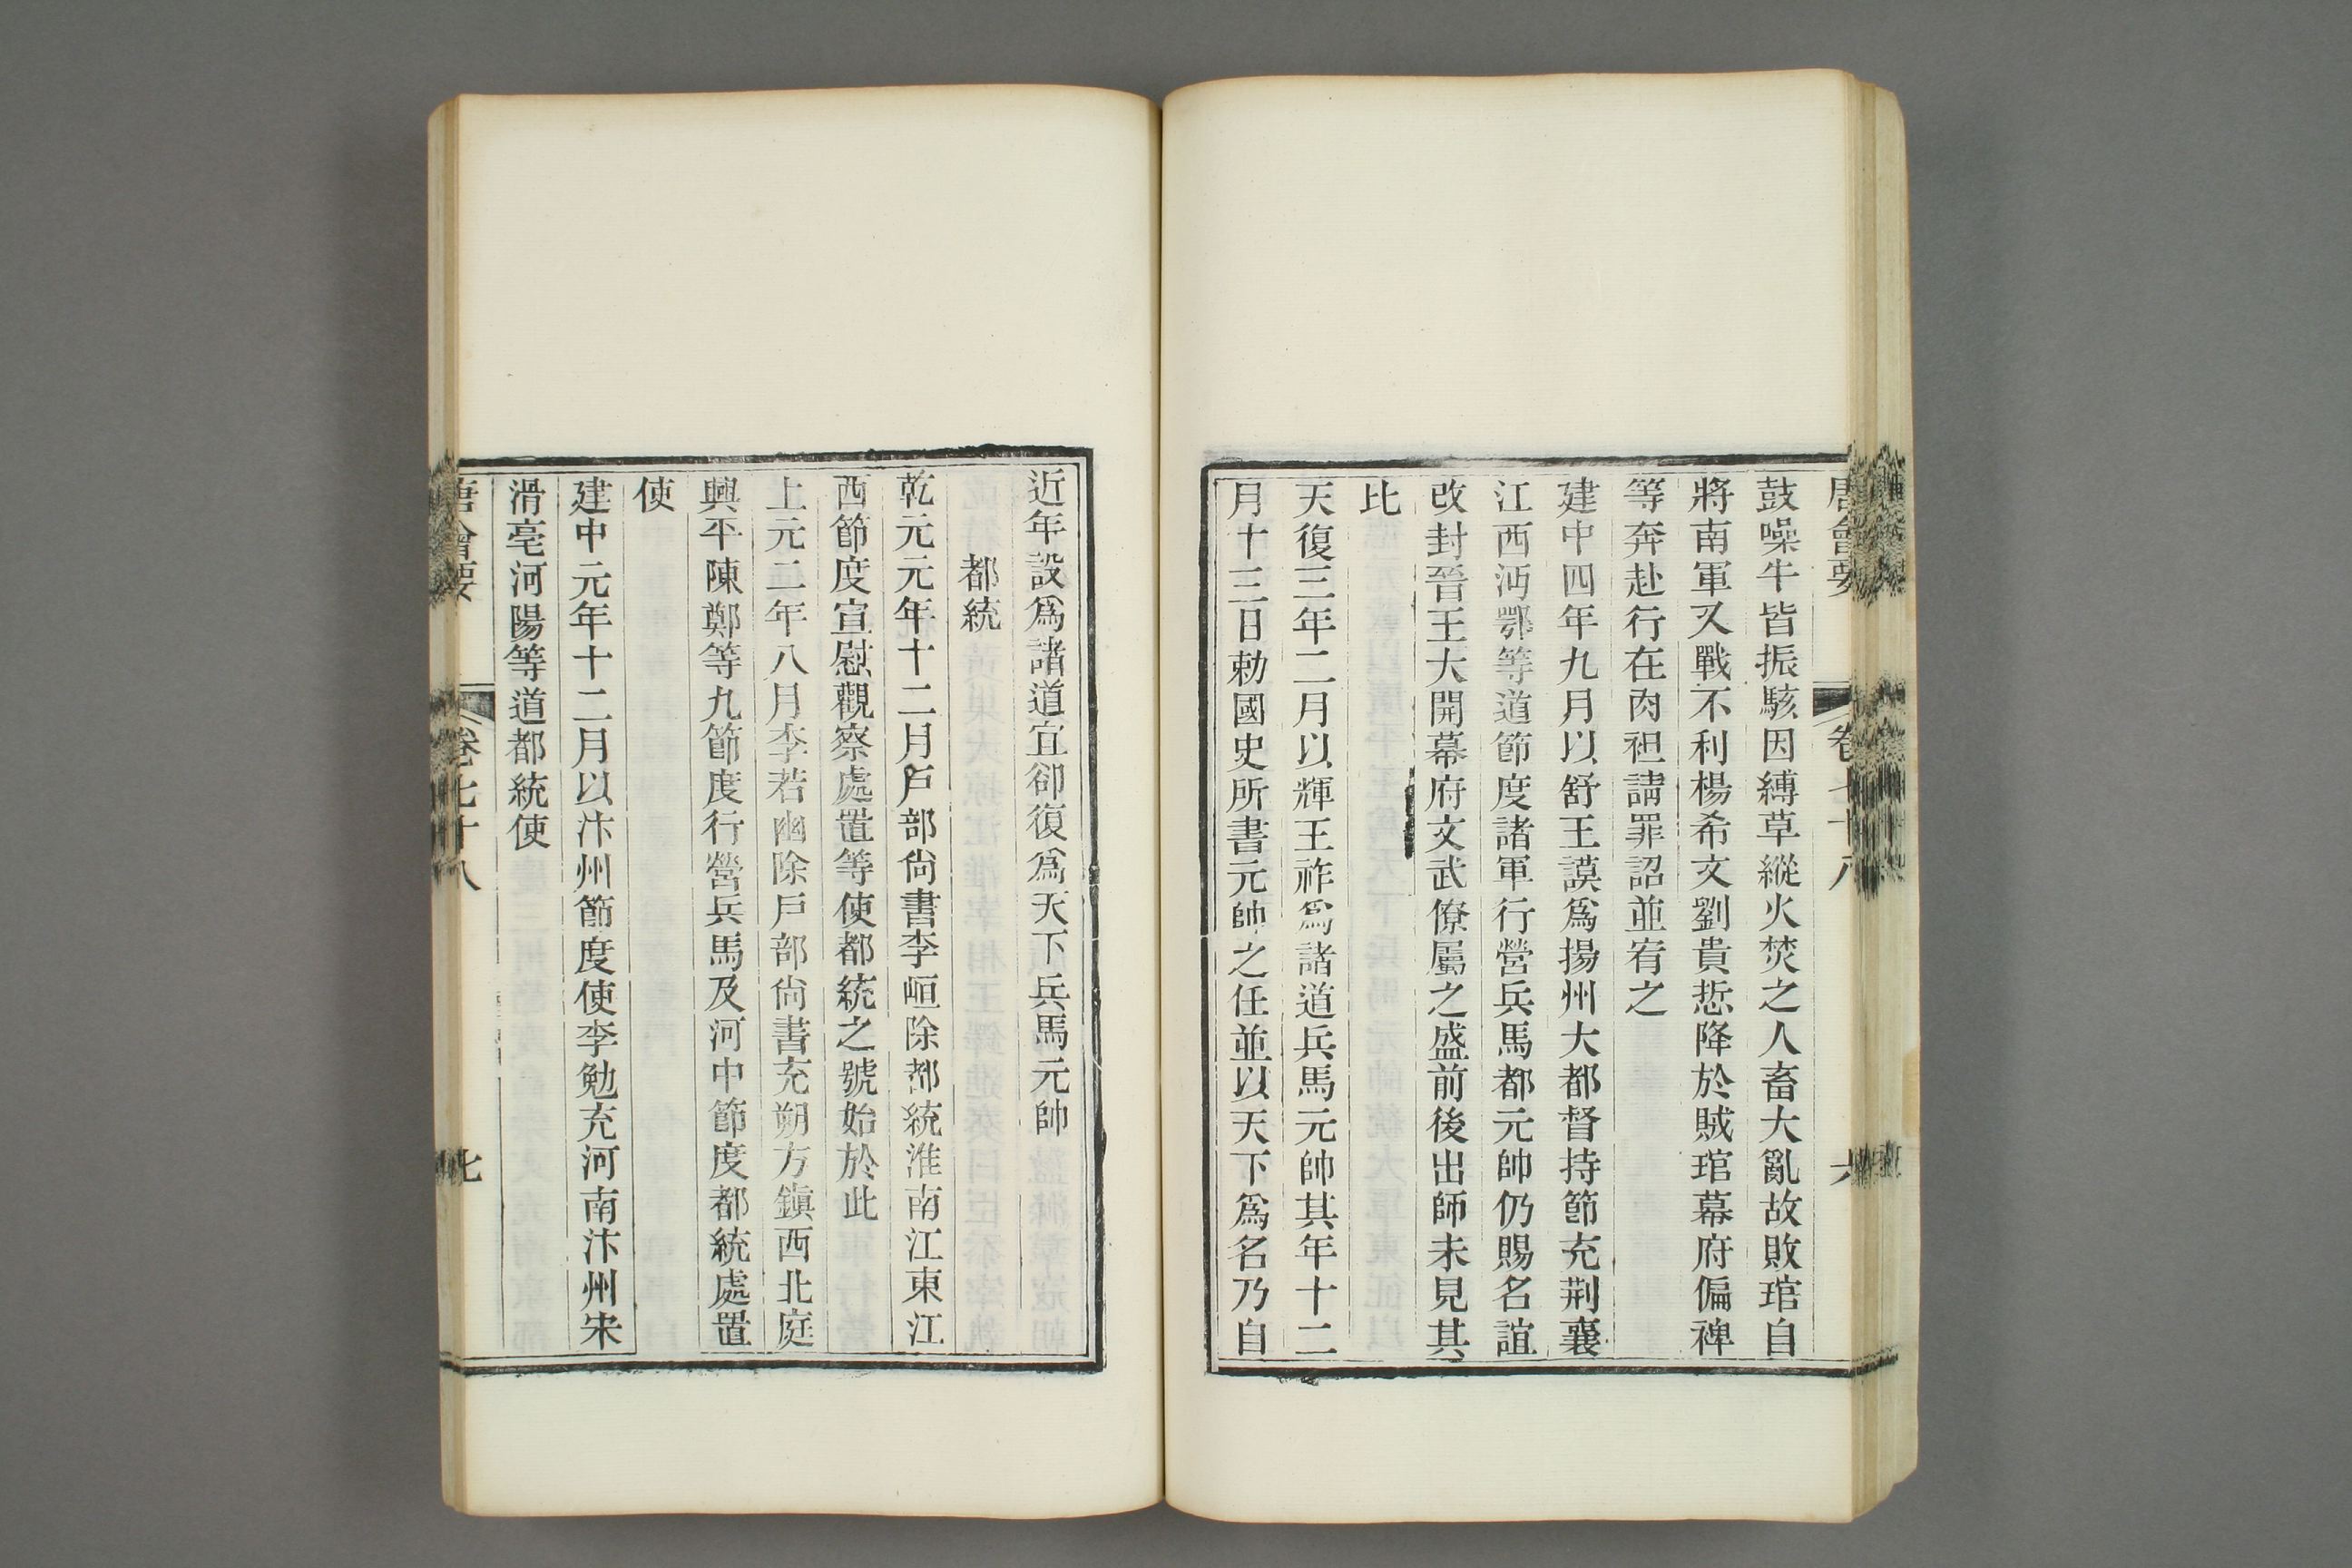 唐會要 卷七十八 六
鼓噪牛皆振駭因縛草縱火焚之人畜大亂故敗琯自
將南軍又戰不利楊希文劉貴悊降於賊琯幕府偏裨
等奔赴行在肉袒請罪詔並宥之
建中四年九月以舒王謨爲揚州大都督持節充荆襄
江西沔鄂等道節度諸軍行營兵馬都元帥仍賜名誼
改封晉王大開幕府文武僚屬之盛前後出師未見其
比
天復三年二月以輝王祚爲諸道兵馬元帥其年十二
月十三日勅國史所書元帥之任並以天下爲名乃自
近年設爲諸道宜卻復爲天下兵馬元帥
都統
乾元元年十二月戸部尙書李峘除都統淮南江東江
西節度宣慰觀察處置等使都統之號始於此
上元二年八月李若幽除戸部尙書充朔方鎭西北庭
興平陳鄭等九節度行營兵馬及河中節度都統處置
使
建中元年十二月以汴州節度使李勉充河南汴州宋
滑亳河陽等道都統使
唐會要 卷七十八 七